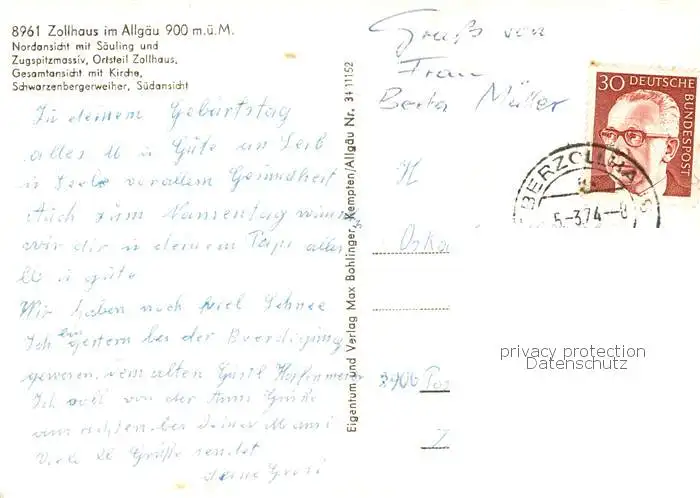 8961 Zollhaus im Allgäu 900 m.ü.M.
Nordansicht mit Säuling und
Zugspitzmassiv, Ortsteil Zollhaus,
Gesamtansicht mit Kirche,
Schwarzenbergerweiher, Südansicht
Zu deinem Geburtstag
alles u Gute an Leib
u Seele vorallem Gesundheit
Auch zum Namenstag
wir dir u deinem Papi alles
u gute
Wir haben noch viel Schnee
Ich bin gestern bei der Beerdigung
gewesen, vom alten
Ich soll von der Grüße
ausrichten bei deiner Mami
Viele Grüße sendet
deine
Eigentum und Verlag Max Bohlinger, Kempten/Allgäu Nr. 3411152
Gruß von
Frau
Berta Müller
30 DEUTSCHE
BUNDESPOST
BERZOLLHA S
5-3.74-8
H
Oska
privacy protection
Datenschutz